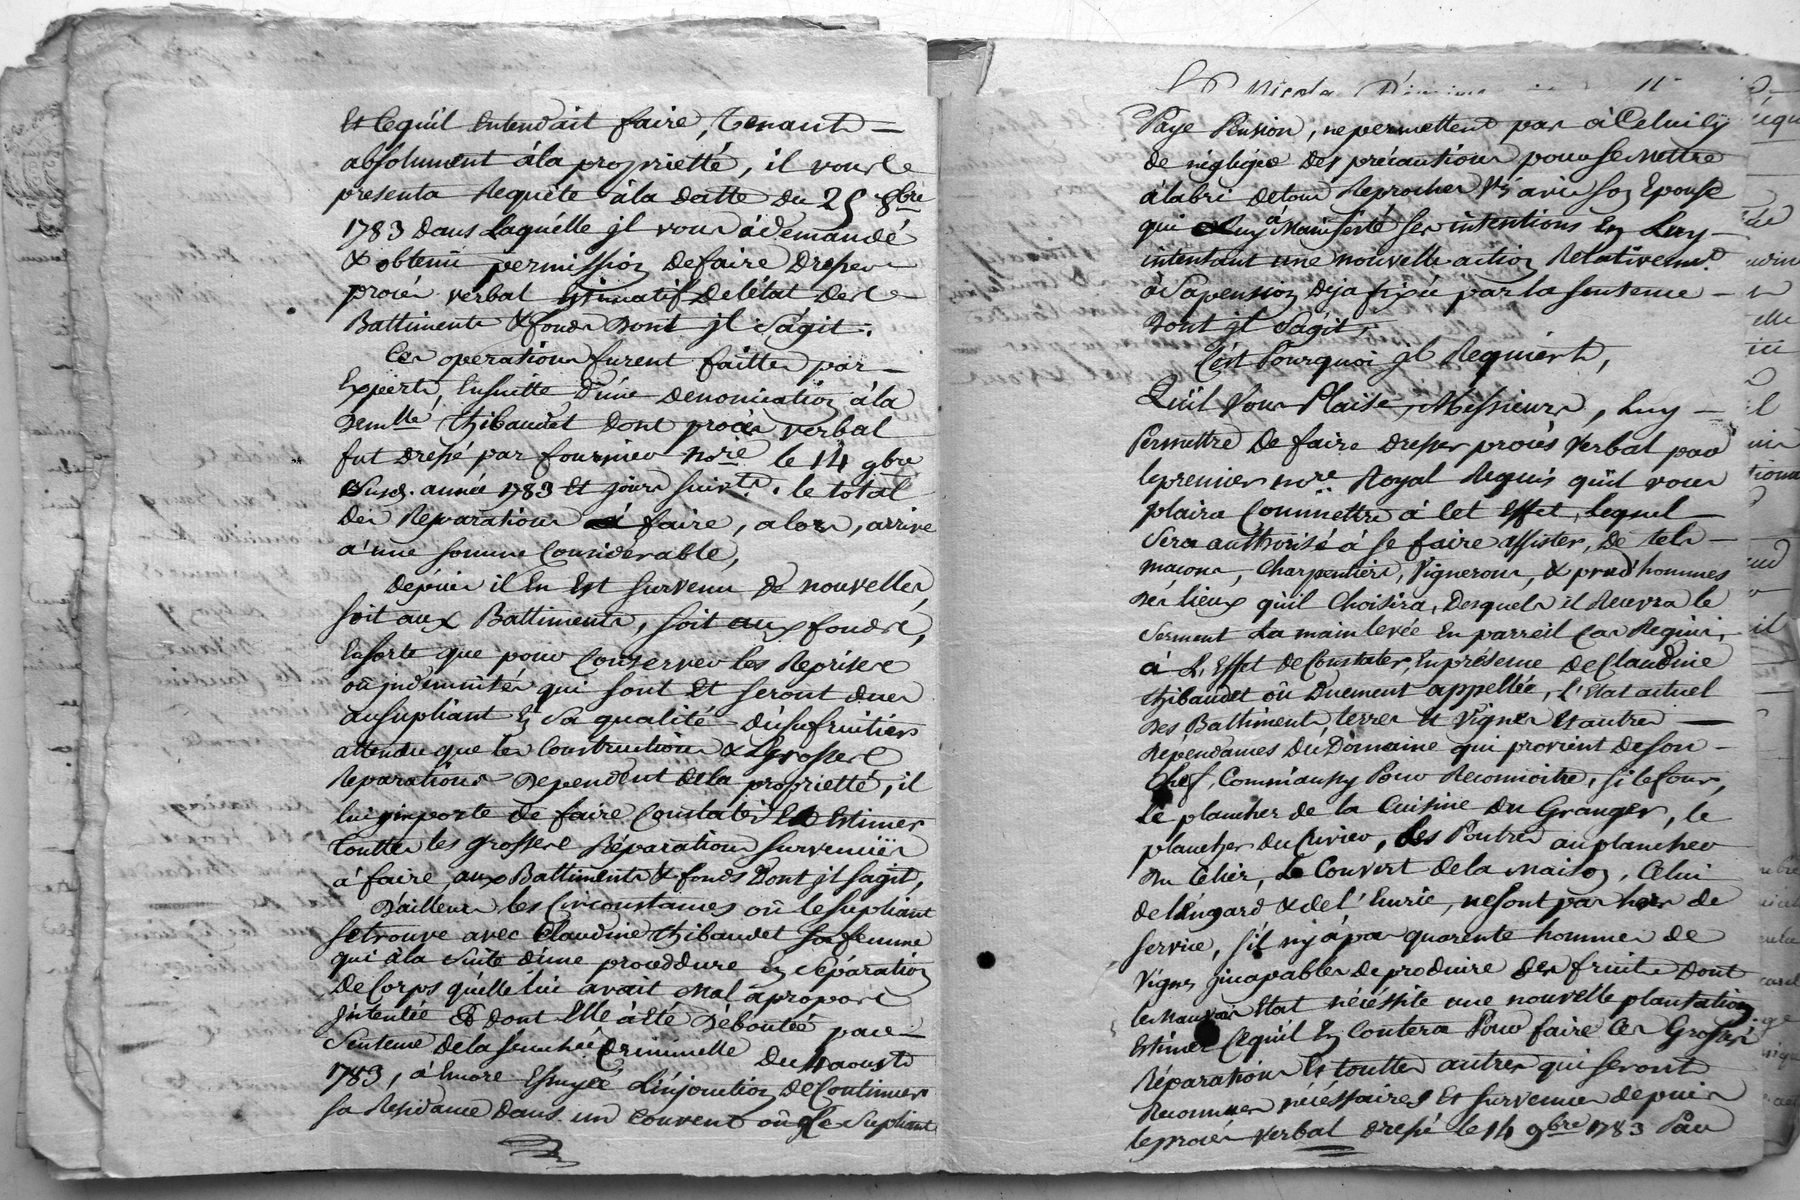 Et cequ'il entendait faire, tenant
absolument à la proprietté, il vous
presenta Requête à la datte du 25 8bre
1783 dans Laquélle jl vous à demandé
& obtenu permission defaire Dresser
procés verbal Estimatif Deletat Des
Battiments & fonds Dont jl S'agit.
Ces operations furent faittes par
Experts, Ensuitte d'une denonciation à la
Demlle thibaudet Dont procés verbal
fut Dressé par fournier nore le 14 9bre
susd. année 1783 et jours suivts. le total
Des Reparations à faire, alors, arrive
a une somme Considerable,
Depuis il En Est survenu De nouvelles
soit aux Battiments, soit aux fonds,
Ensorte que pour Conserver les Reprises
où jndemnités qui sont et seront dues
ausupliant En sa qualité d'usufruitier
attendu que les Constructions & grosses
Reparations Dependent dela proprietté, il
lui jmporte de faire Constater Et Estimer
touttes les grosses Réparations survenües
à faire, aux Battiments & fonds Dont jl sagit,
D'ailleurs les Circonstances où le supliant
setrouve avec Claudine thibaudet sa femme
qui à la suite d'une proceddure En Séparation
de Corps qu'elle lui avait mal à propos
jntentée & dont Elle à Eté Déboutée par
Sentence dela senechée Criminelle du aoust
1783, à Encore Essuyée L'injonction de Continuer
sa Residance dans un Couvent où le supliant
Nicolas
Paye Pension, ne permettent pas à Celui cy
de négliger Des précautions pour se mettre
à labri detous Reproches vis avis son Epouse
qui à Manifesté ses intentions En Luy
intentant une nouvelle action Relativemt
à sa pension Déja fixée par la sentence
Dont jl s'agit,
C'est Pourquoi jl Requiert,
Qu'il Vous Plaise, Messieurs, Luy
Permettre De faire dresser procès verbal par
le premier nore Royal Requis qu'il vous
plaira Commettre à Cet Effet, Lequel
Sera authorisé à se faire assister, De tels
macons, Charpentiers, Vignerons, & prud'hommes
Des lieux qu'il Choisira, Desquels il Recevra le
Serment La main levée En parreil Cas Requis,
à L'Effet de Constater, Enprésence de Claudine
thibaudet où Duement appellée, L'Etat actuel
Des Battiments terres et vignes Et autres
Dependances Du Domaine qui provient de son
Chef, Comm'aussy Pour Reconnoitre, si le four,
Le plancher de la Cuisine du Granger, le
plancher du Cuvier, Les Poutres au plancher
du Celier, Le Couvert de la maison, Celui
de l'Engard & de l'Ecurie, ne sont pas hors de
service, s'il n'y à pas quarente hommées de
Vignes jncapables de produire des fruits Dont
le mauvais Etat nécéssite une nouvelle plantation,
Estimer Cequ'il En Coutera Pour faire Ces Grosses
Réparations Et touttes autres qui seront
Reconnues nécéssaires Et survenues depuis
le procés verbal dressé le 14 9bre 1783 Par